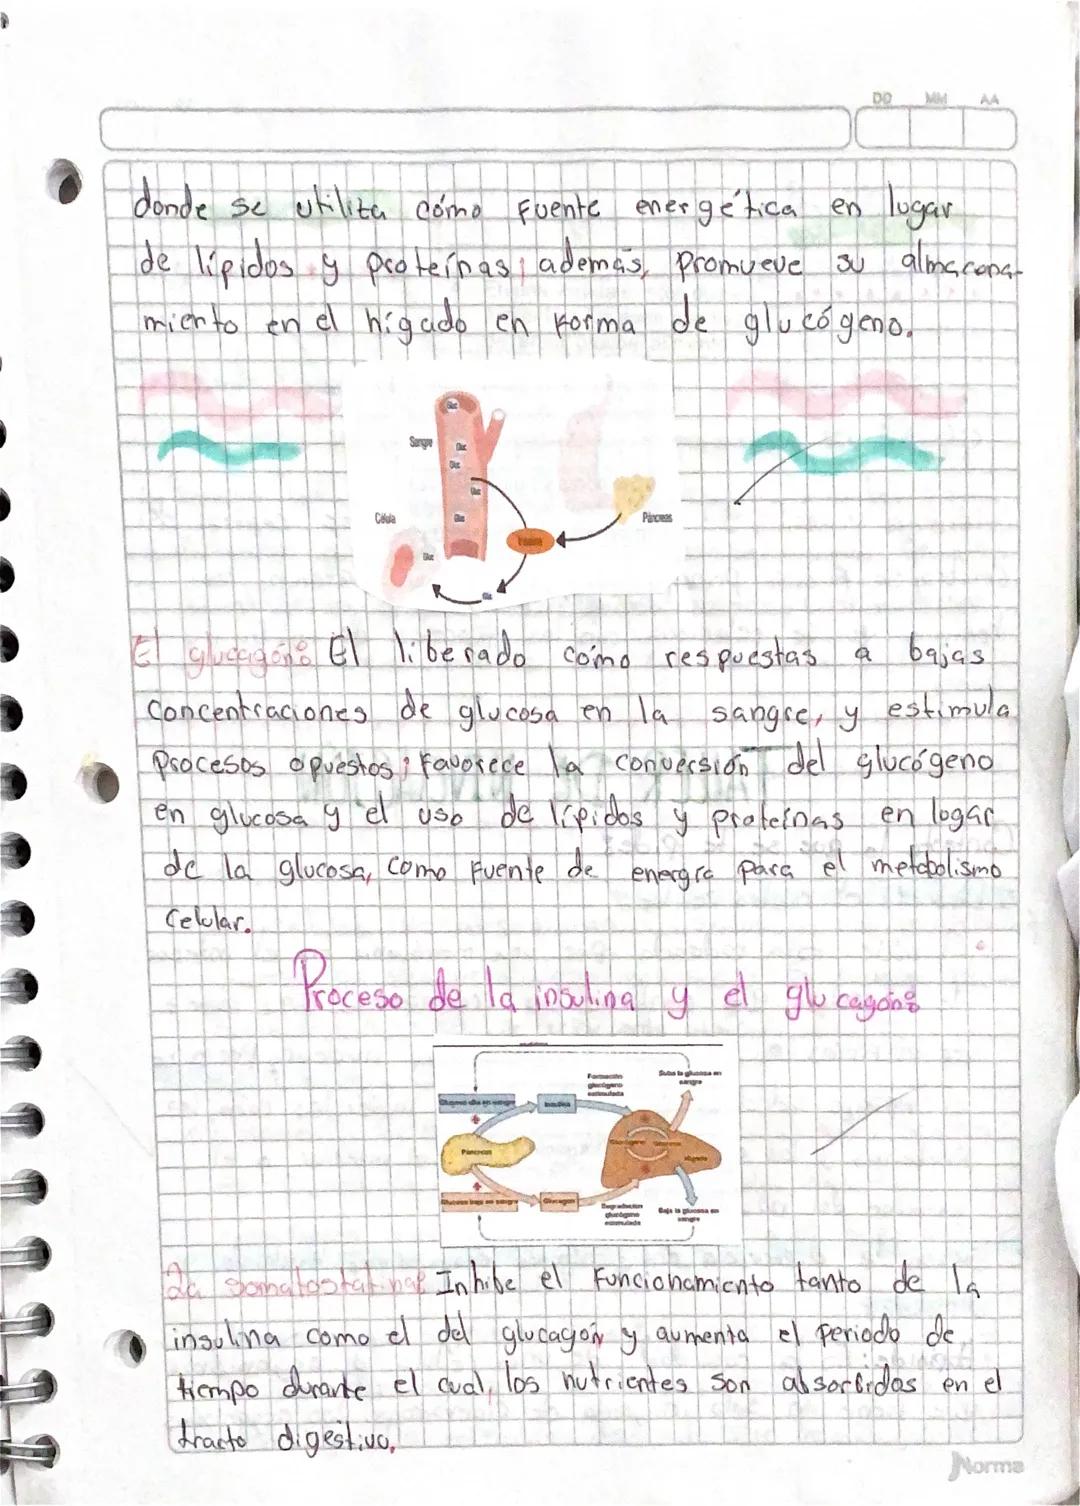 DD MM AA
donde se utilita cómo Fuente energética en lugar
de lípidos y proteínas; además, promueve su almacena-
miento en el hígado en Forma de glucógeno.
Gluc
Sangre
Gluc
Gluc
Gluc
Célula
Gluc
Páncreas
Insulina
Gluc
El glucagón: El liberado cómo respuestas a bajas
concentraciones de glucosa en la sangre, y estimula
Procesos opuestos; Favorece la conversión del glucógeno
en glucosa y el uso de lípidos y proteínas en logar
de la glucosa, como Fuente de energía para el metabolismo
Celular.
Proceso de la insulina y el glucagón:
Formación
glucógeno
estimulada
Sube la glucosa en
sangre
Glucosa alta en sangre
Insulina
Páncreas
Glucógeno
Glucosa
Hígado
Glucosa baja en sangre
Glucagon
Degradación
glucógeno
estimulada
Baja la glucosa en
sangre
La somatostatina: Inhibe el Funcionamiento tanto de la
insulina como el del glucagón y aumenta el periodo de
tiempo durante el cual, los nutrientes son absorbidos en el
tracto digestivo.
Norma